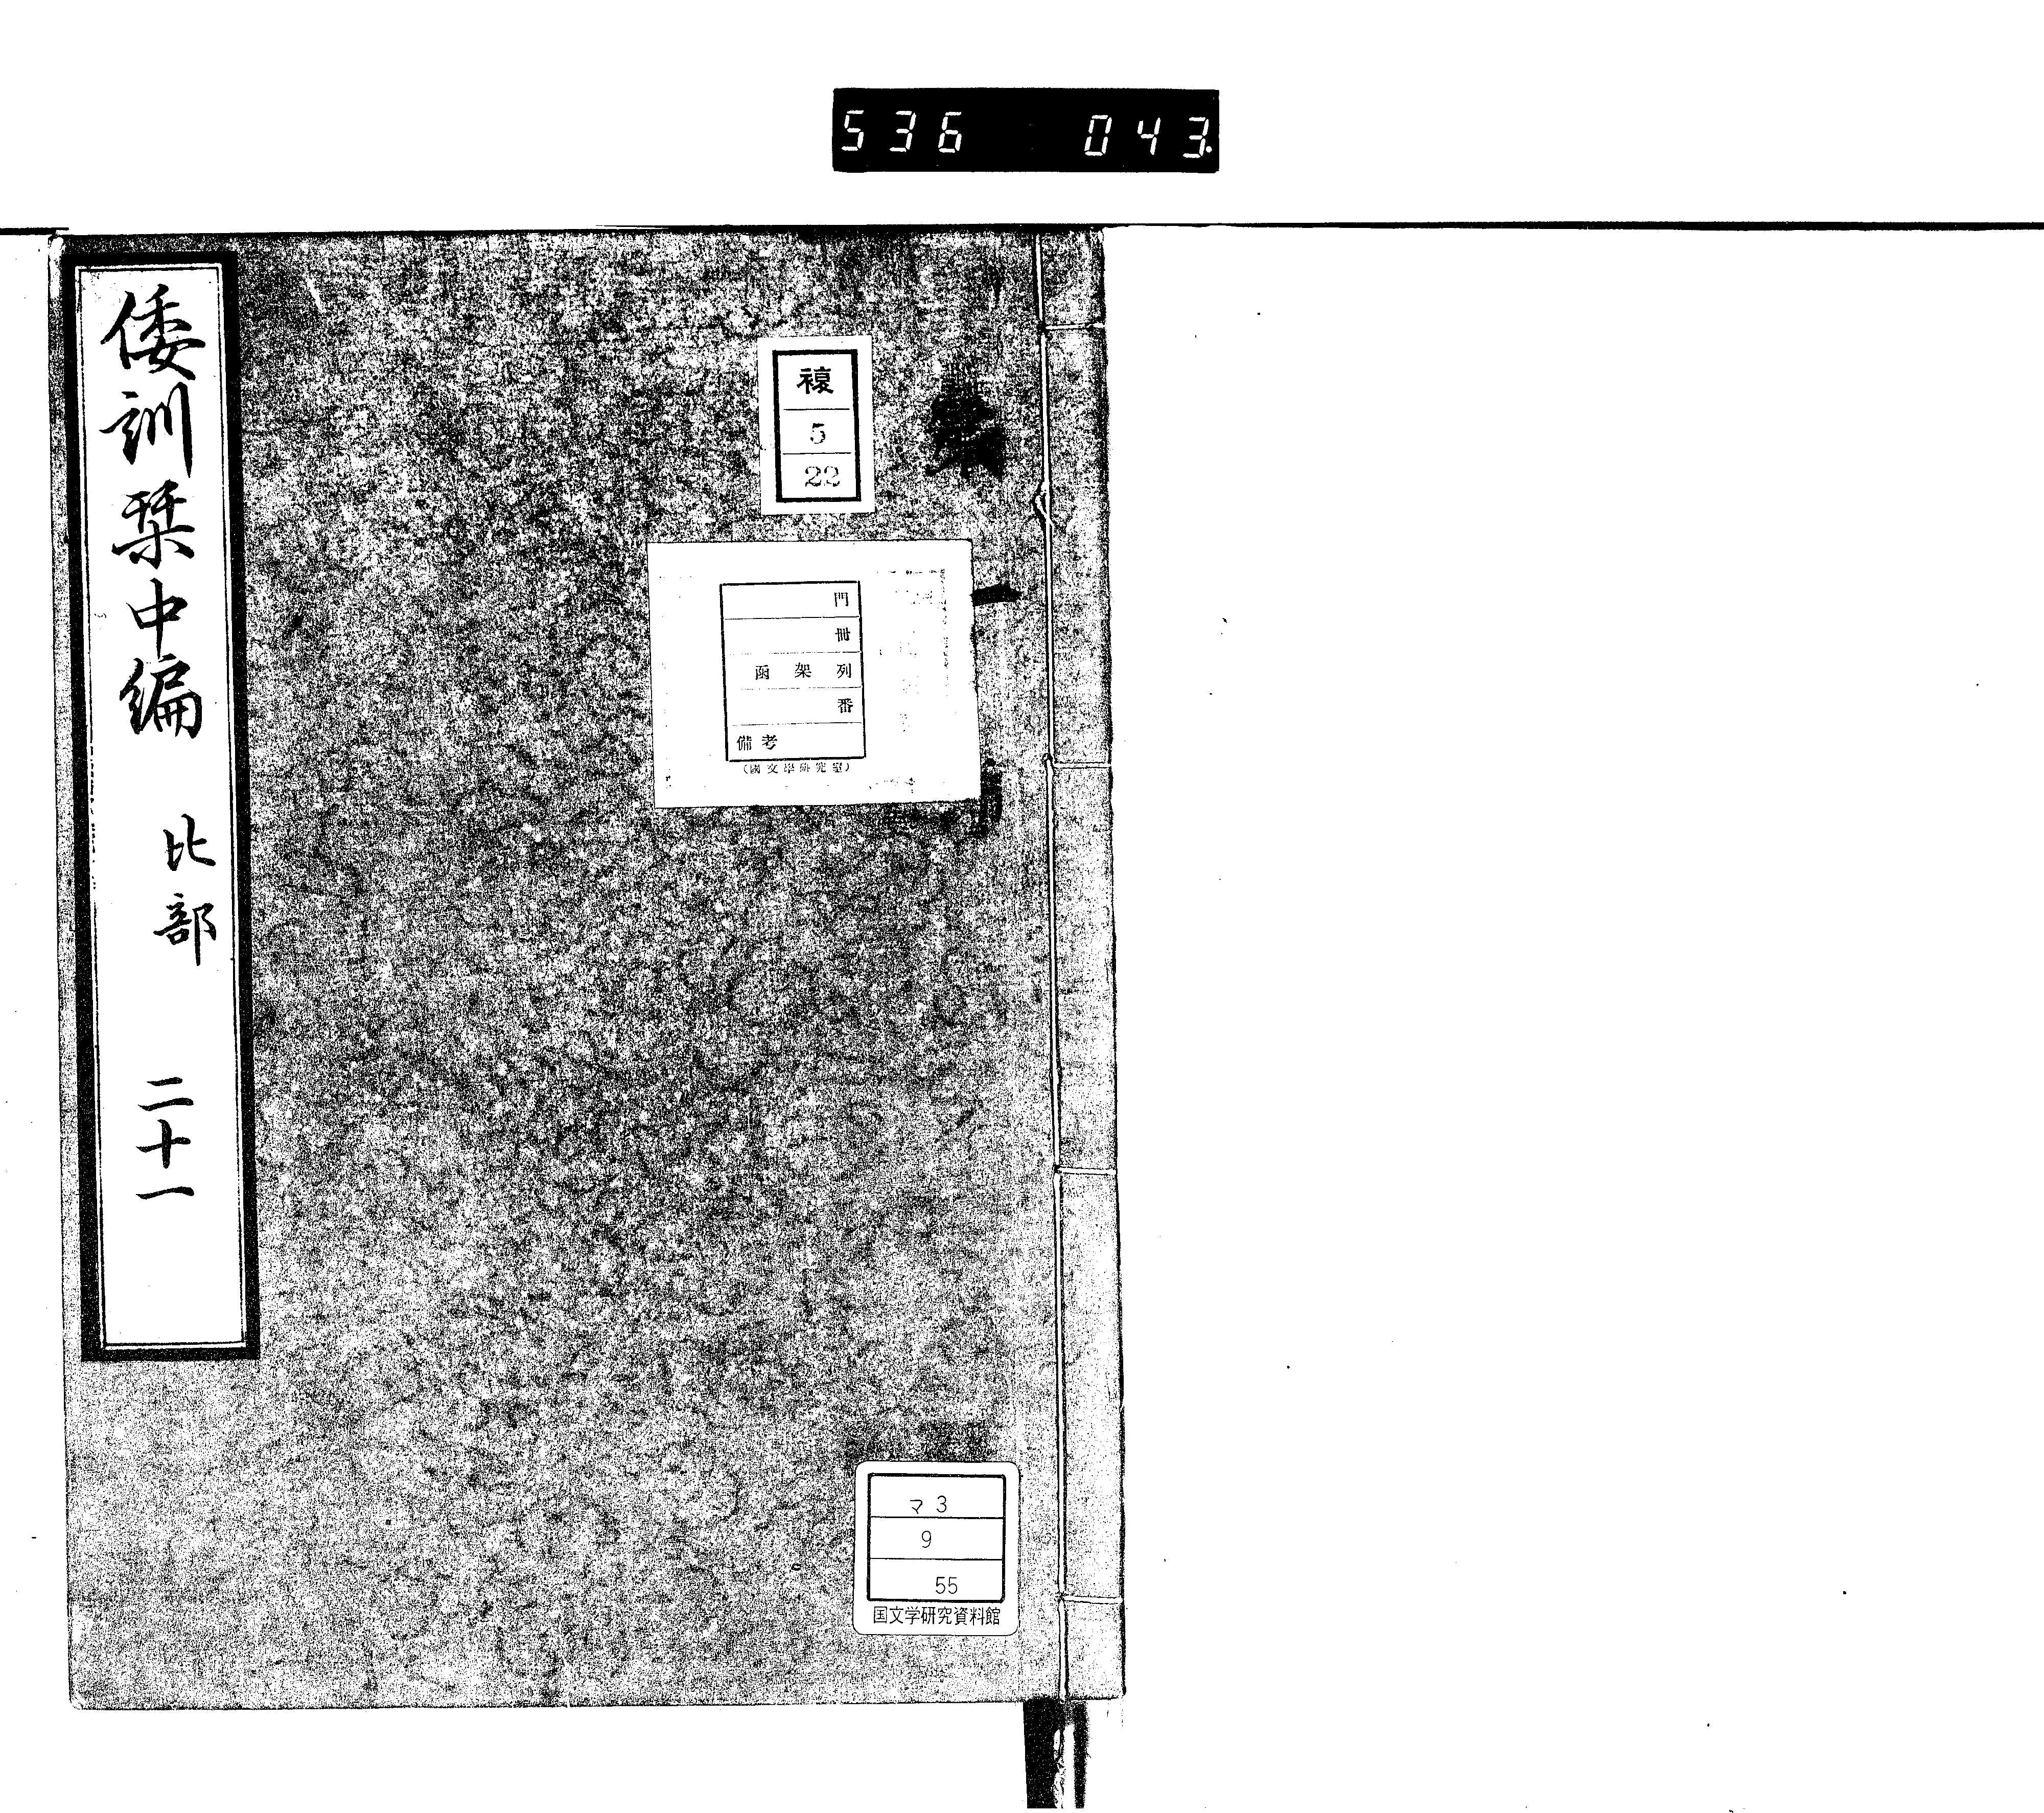 536 043.
倭訓栞中編 比部 二十一
複
5
22
門
冊
函架列
番
備考
(國文學研究室)
マ3
9
55
国文学研究資料館